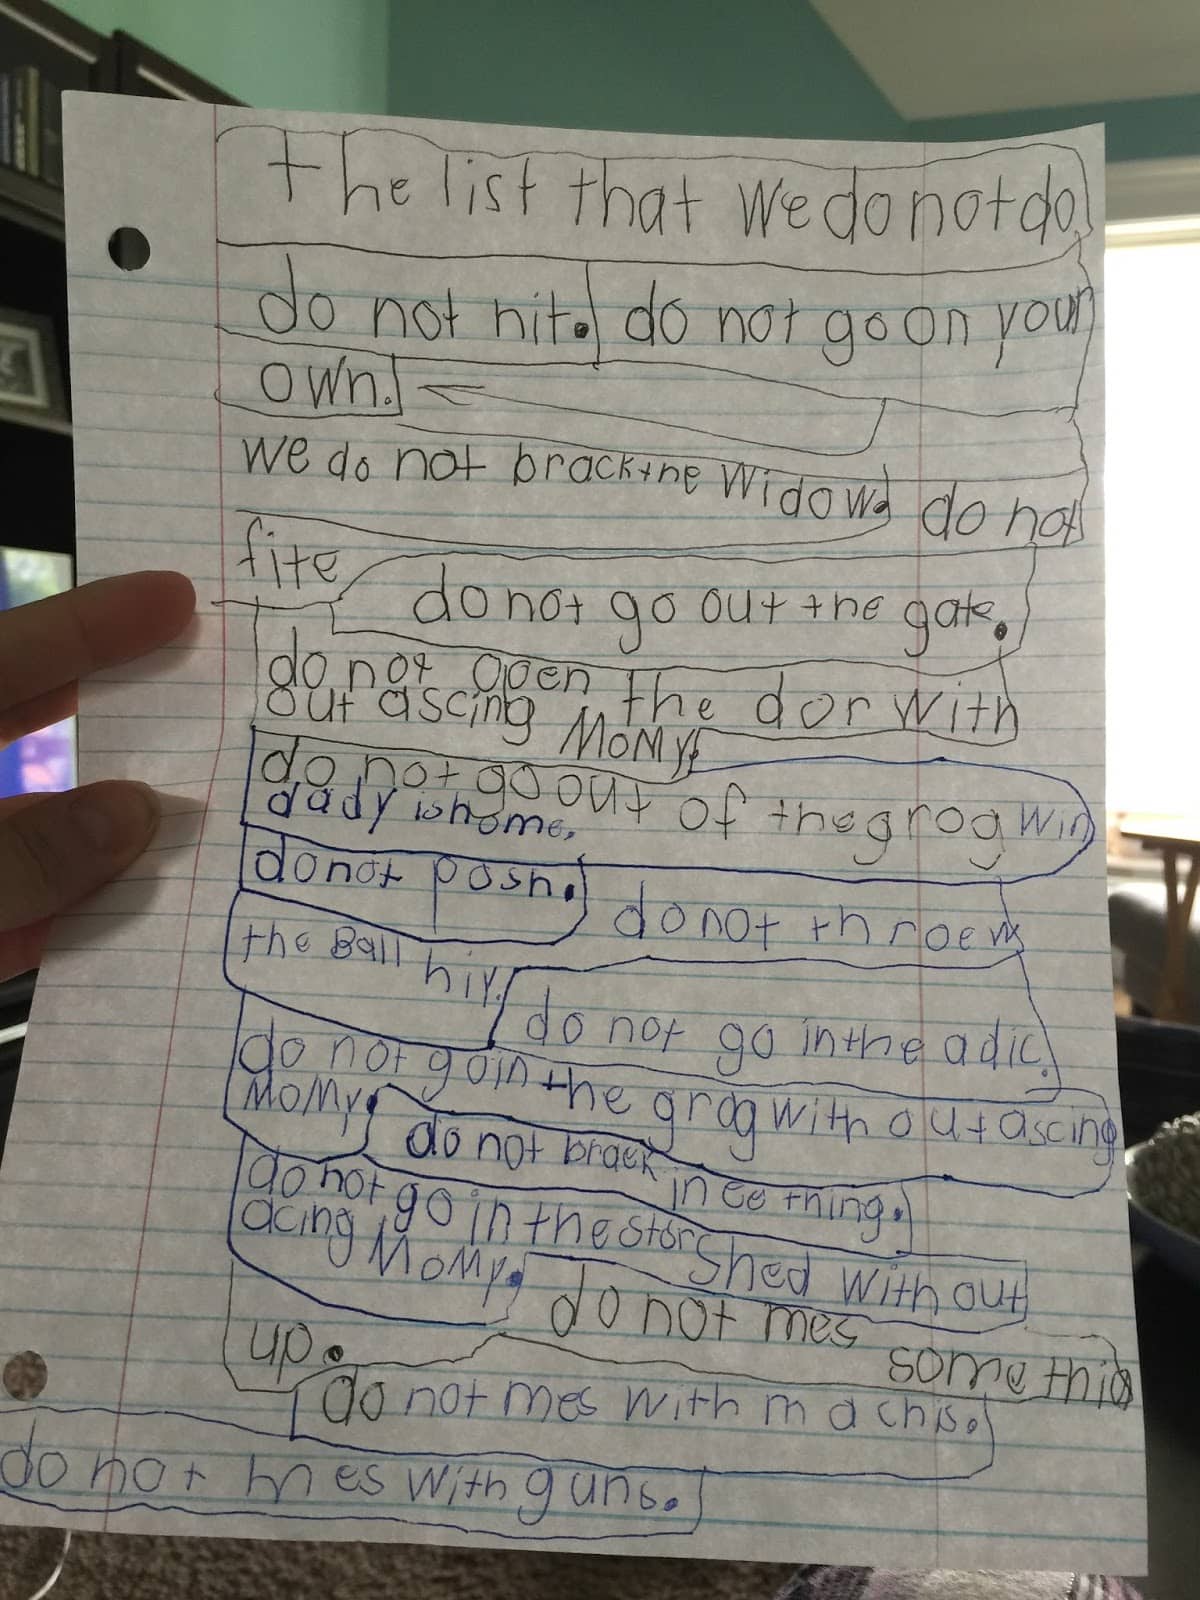 the list that we do not do
do not hit. do not go on your
own.
we do not brack the widow. do not
fite do not go out the gate.
do not open the dor with
out ascing MoMy.
do not go out of the grog win
dady is home.
do not posh. do not throew
the Ball hiy. do not go in the adic.
do not go in the grag with out ascing
MoMy. do not braek in ee thing.
do not go in the stor shed with out
acing MoMy. do not mes some thig
up.
do not mes with machis.
do not mes with guns.